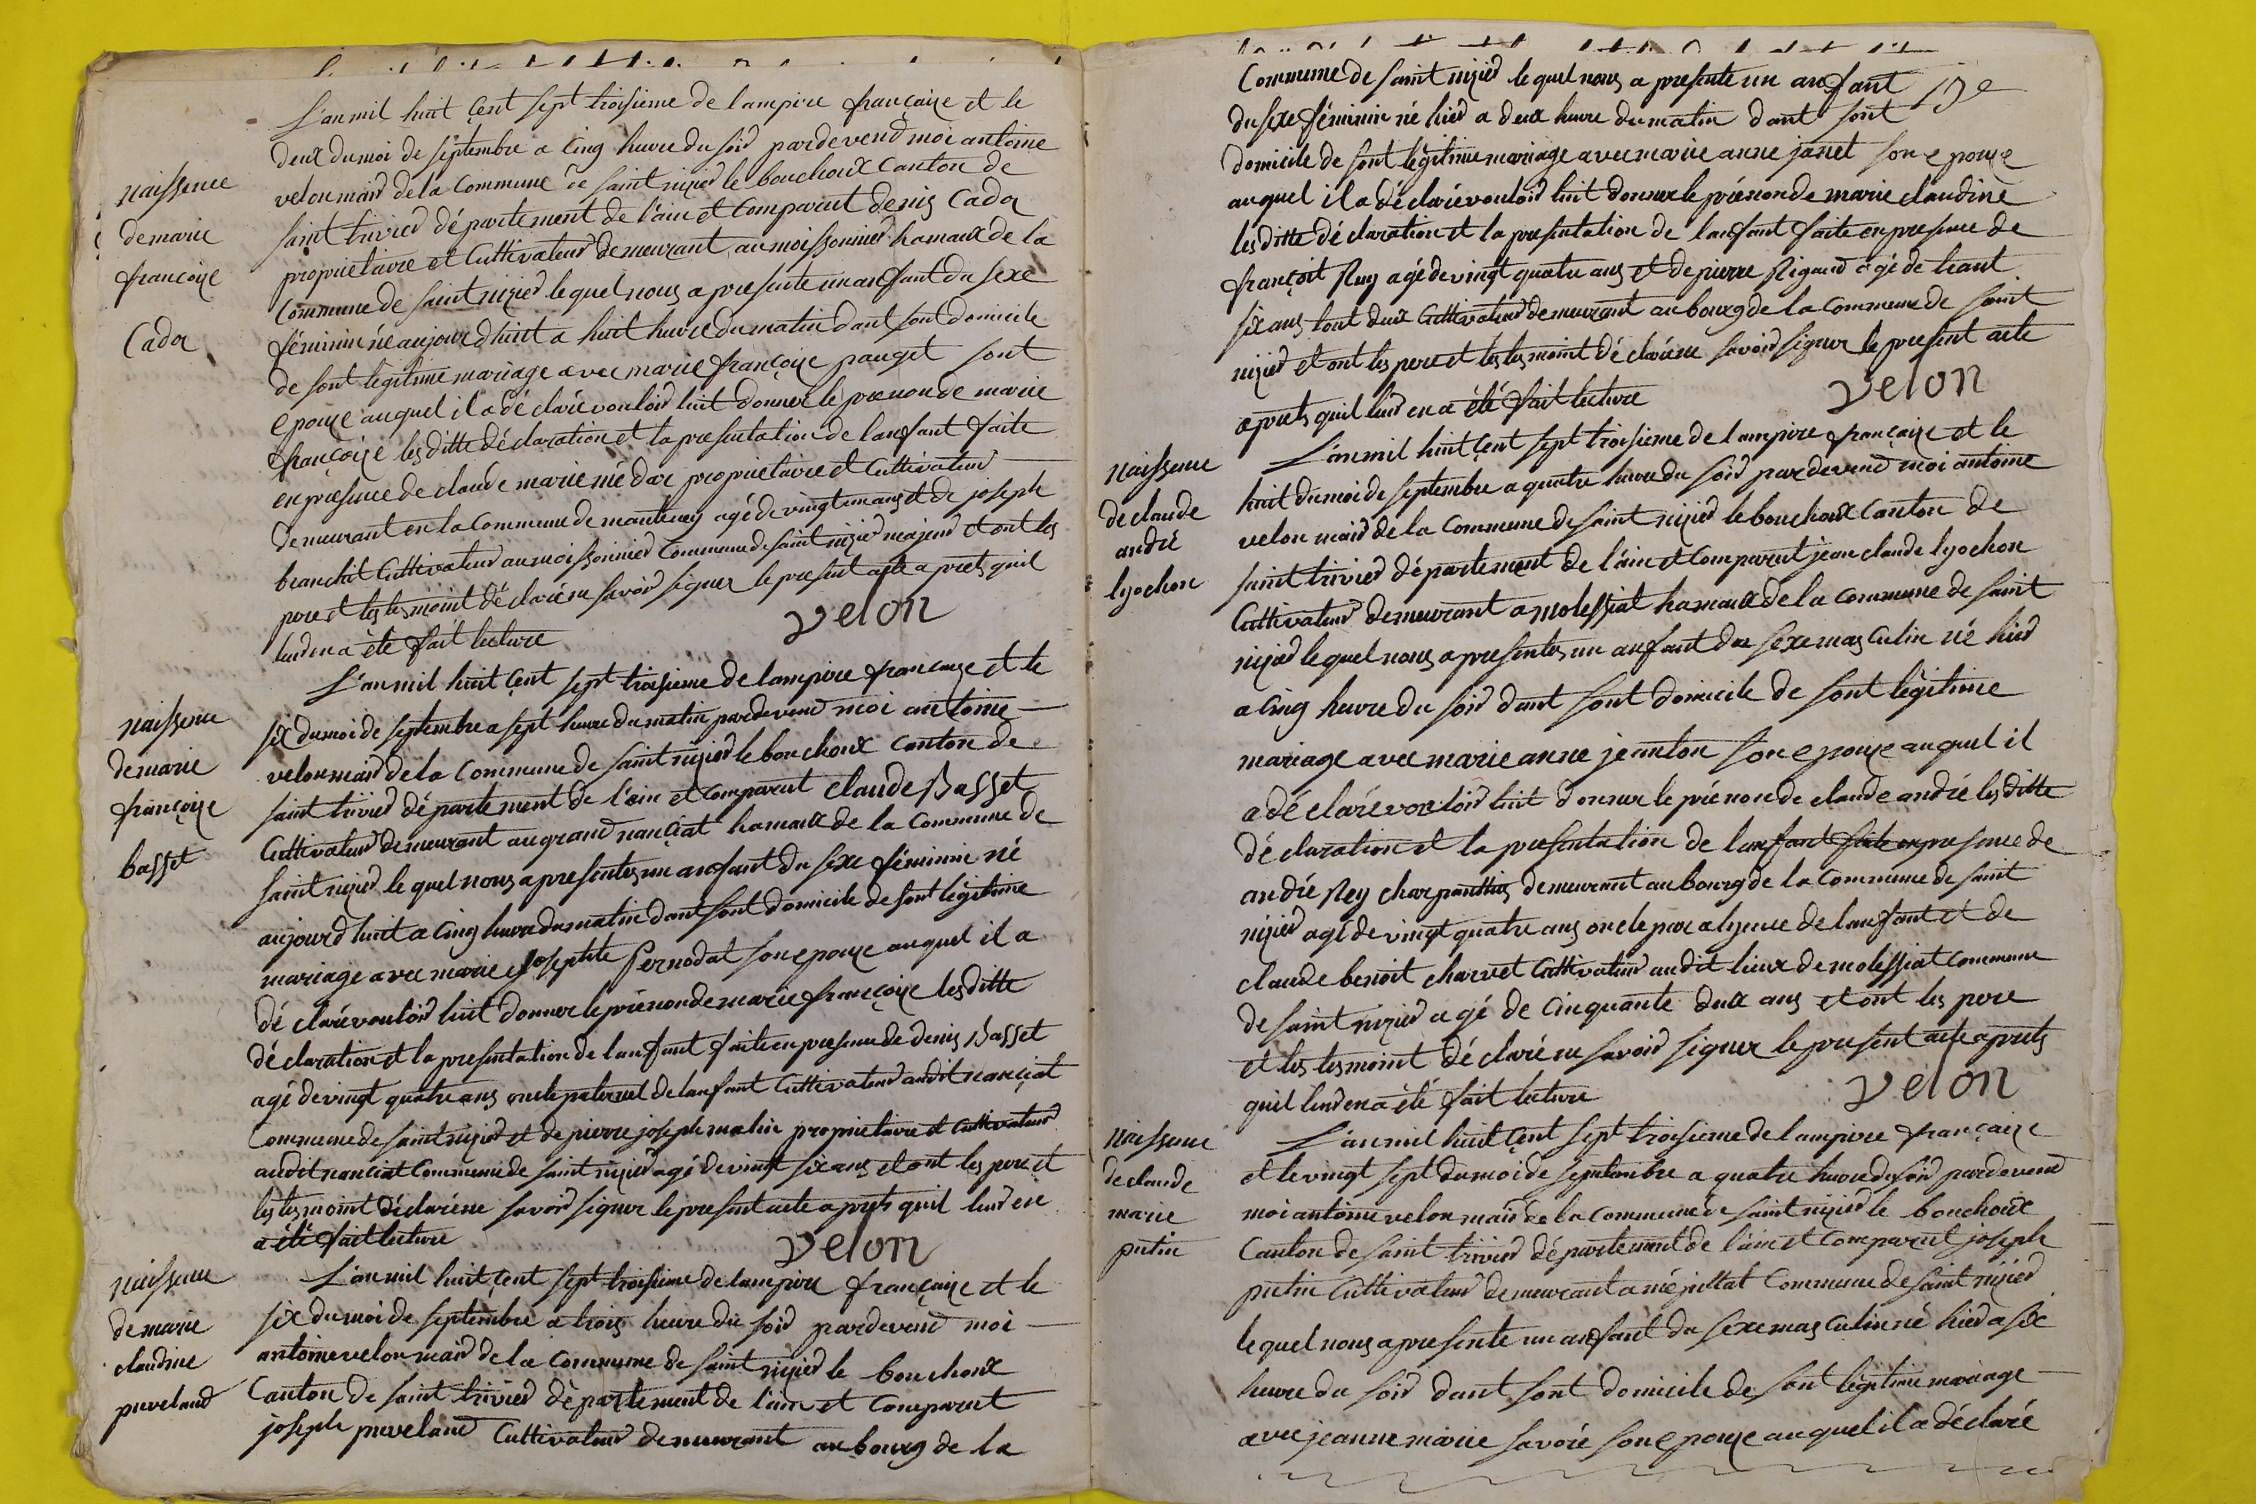 naissence
de marie
françoize
Cador
L'an mil huit çent sept troisieme de l'ampire françaize et le
deux du moi de septembre a cinq heure du soir pardevend moi antoine
velon maire de la Commune de saint nizier le bouchoux Canton de
saint trivier département de l'ain et Comparut denis Cador
proprietaire et Cultivateur demeurant au moissonnier hamaux de la
Commune de saint nizier le quel nous a presente un anfant du sexe
féminin né aujourd huit a huit heure du matin dant sont domicile
de sont légitime mariage avec marie françoize pauget sont
epouze auquel il a déclaré vouloir luit donner le prenon de marie
françoize les ditte déclaration et la presentation de l'anfant faite
en presence de claude marie médar proprietaire et Cultivateur
demeurant en la Commune de mantenay agé de vingt un ans et de joseph
branchit Cultivateur au moissonnier Commune de saint nizier majeur et ont les
pere et les tesmoint déclaré ne savoir signer le present acte aprets quil
leur en a été fait lecture
velon
naissence
de marie
françoize
basset
L'an mil huit çent sept troisieme de lampire françaize et le
six du moi de septembre a sept heure du matin pardevend moi antoine
velon maire de la Commune de saint nizier le bouchoux Canton de
saint trivier département de l'ain et Comparut claude Basset
Cultivateur demeurant au grand nançiat hamaux de la Commune de
saint nizier le quel nous a presentes un anfant du sexe féminin né
aujourd huit a cinq heure du matin dant sont domicile de sont légitime
mariage avec marie josephte Pernodat son epouze auquel il a
déclaré vouloir luit donner le prénon de marie françoize les ditte
déclaration et la presentation de lanfant faite en presence de denis Basset
agé de vingt quatre ans oncle paternel de lanfant Cultivateur audit nançiat
Commune de saint nizier et de pierre joseph matin proprietaire et Cultivateur
audit nançiat Commune de saint nizier agé de vingt six ans et ont les pere et
les tesmoint déclaré ne savoir signer le present acte aprets quil leur en
a été fait lecture
velon
naissence
de marie
claudine
puveland
L'an mil huit çent sept troisieme de lampire françaize et le
six du moi de septembre a trois heure du soir pardevend moi
antoine velon maire de la Commune de saint nizier le bouchoux
Canton de saint trivier département de l'ain et Comparut
joseph puveland Cultivateur demeurant au bourg de la
Commune de saint nizier le quel nous a presente un anfant
du sexe féminin né hier a deux heure du matin dant sont
domicile de sont légitime mariage avec marie anne janet son epouze
auquel il a déclaré vouloir luit donner le prénon de marie claudine
les ditte déclaration et la presentation de lanfant faite en presence de
françoit Rey agé de vingt quatre ans et de pierre Rigaud agé de trant
six ans tout deux Cultivateur demeurant au bourg de la Commune de saint
nizier et ont les pere et les tesmoint déclaré ne savoir signer le present acte
aprets quil leur en a été fait lecture
velon
naissence
de claude
andré
lyochon
L'an mil huit çent sept troisieme de l'ampire françaize et le
huit du moi de septembre a quatre heure du soir pardevend moi antoine
velon maire de la Commune de saint nizier le bouchoux Canton de
saint trivier département de l'ain et Comparut jean claude lyochon
Cultivateur demeurant a molessiat hamaux de la Commune de saint
nizier le quel nous a presentes un anfant du sexe masculin né hier
a cinq heure du soir dant sont domicile de sont légitime
mariage avec marie anne jeanton son epouze auquel il
a déclaré vouloir luit donner le prénon de claude andré les ditte
déclaration et la presentation de lanfant faite en presence de
andré Rey charpanttier demeurant au bourg de la Commune de saint
nizier agé de vingt quatre ans oncle par alyence de lanfant et de
claude benoit charvet Cultivateur audit lieux de molessiat Commune
de saint nizier agé de Cinquante deux ans et ont les pere
et les tesmoint déclaré ne savoir signer le present acte aprets
quil leur en a été fait lecture
velon
naissence
de claude
marie
putin
L'an mil huit çent sept troisieme de lampire françaize
et le vingt sept du moi de septembre a quatre heure du soir pardevend
moi antoine velon maire de la Commune de saint nizier le bouchoux
Canton de saint trivier département de l'ain et Comparut joseph
putin Cultivateur demeurant a Commune de saint nizier
le quel nous a presente un anfant du sexe masculin né hier a six
heure du soir dant sont domicile de sont légitime mariage
avec jeanne marie savoié son epouze auquel il a déclaré